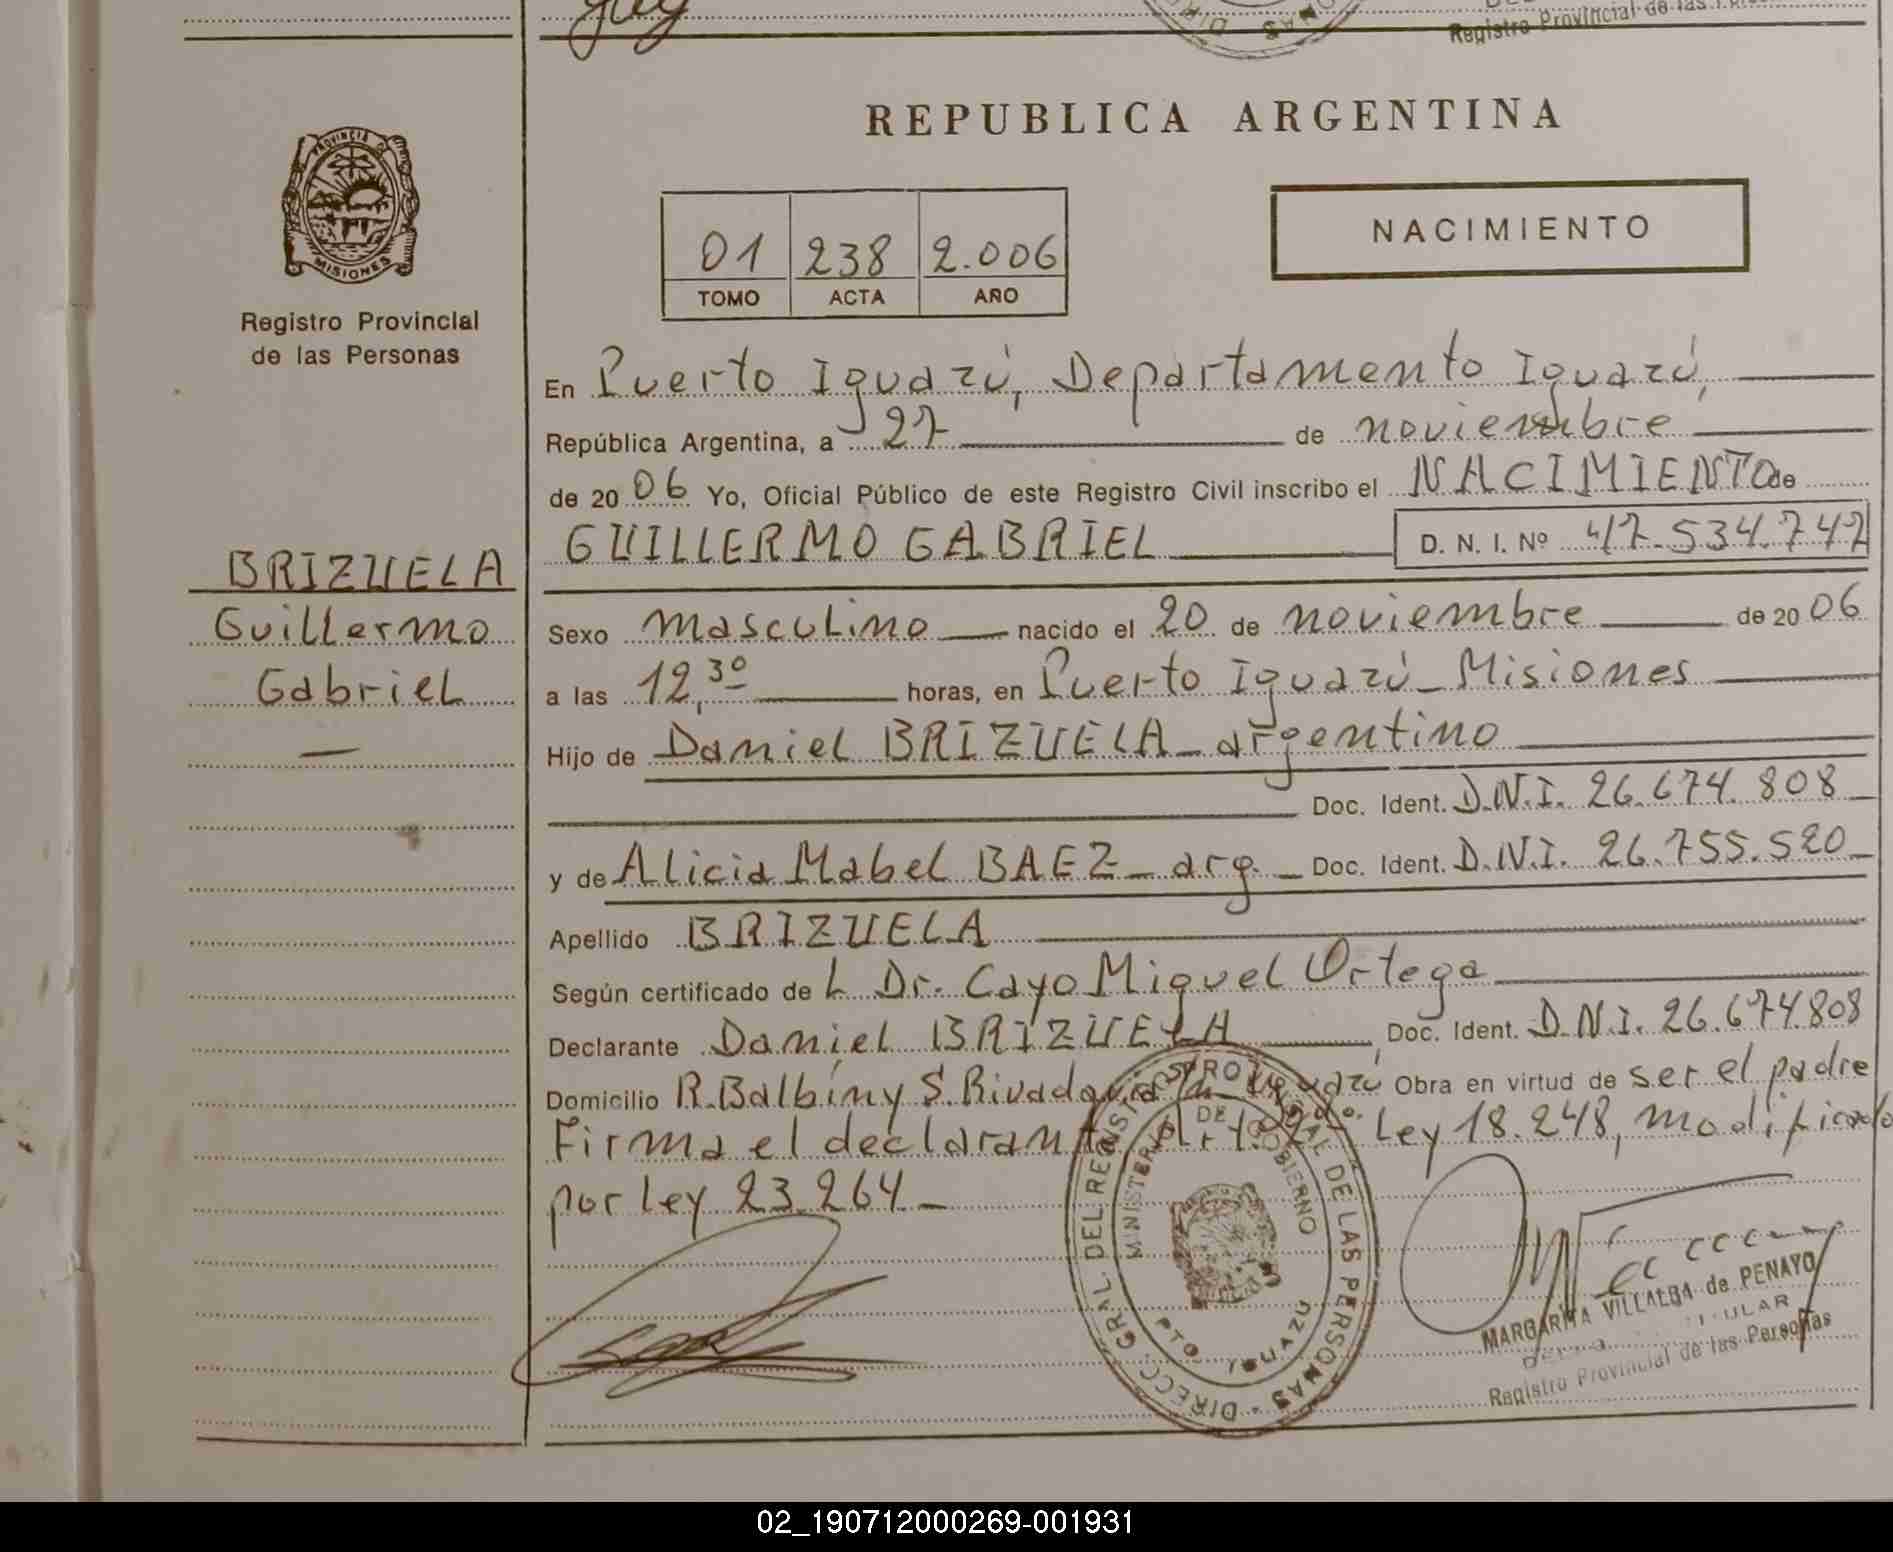 Registro Provincial de las
REPUBLICA ARGENTINA
PROVINCIA DE
MISIONES
Registro Provincial
de las Personas
01 238 2.006
TOMO ACTA AÑO
NACIMIENTO
En Puerto Iguazú, Departamento Iguazú,
República Argentina, a 27 de noviembre
de 2006 Yo, Oficial Público de este Registro Civil inscribo el NACIMIENTO de
GUILLERMO GABRIEL D. N. I. Nº 47.534.747
BRIZUELA
Guillermo
Gabriel
Sexo masculino nacido el 20 de noviembre de 2006
a las 12,30 horas, en Puerto Iguazú - Misiones
Hijo de Daniel BRIZUELA - argentino
Doc. Ident. D.N.I. 26.674.808
y de Alicia Mabel BAEZ - arg. - Doc. Ident. D.N.I. 26.755.520
Apellido BRIZUELA
Según certificado de L Dr. Cayo Miguel Ortega
Declarante Daniel BRIZUELA, Doc. Ident. D.N.I. 26.674808
Domicilio R. Balbín y S. Rivadavia Iguazú Obra en virtud de ser el padre
Firma el declarante Art. Ley 18.248, modificado
por Ley 23.264 -
DIRECC. GRAL. DEL REGISTRO PROVINCIAL DE LAS PERSONAS
MINISTERIO DE GOBIERNO
PTO. IGUAZU
MARGARITA VILLALBA de PENAYO
Registro Provincial de las Personas
02_190712000269-001931